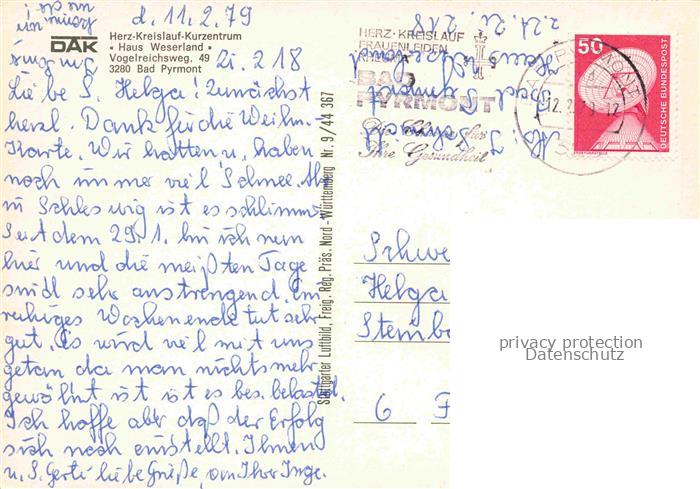 d. 11.2.79
DAK
Herz-Kreislauf-Kurzentrum
• Haus Weserland •
Vogelreichsweg, 49
3280 Bad Pyrmont
Zi. 218
Liebe S. Helga! Zunächst
herzl. Dank für die Weihn.
Karte. Wir hatten u. haben
noch immer viel Schnee. Aber
in Schleswig ist es schlimm.
Seit dem 29.1. bin ich nun
hier und die meißten Tage
sind sehr anstrengend. Ein
ruhiges Wochenende tut sehr
gut. Es wird viel mit uns
getan da man nichts mehr
gewöhnt ist ist es bes. belastd.
Ich hoffe aber daß der Erfolg
sich noch einstellt. Ihnen
u. S. Gerti liebe Grüße, von Ihrer Inge.
Stuttgarter Luftbild, Freig. Reg. Präs. Nord-Württemberg Nr. 9/44 367
HERZ-KREISLAUF
FRAUENLEIDEN
BAD
PYRMONT
Ihre Gesundheit
Haus
Bad
218
50
DEUTSCHE BUNDESPOST
Schwe
Helga
Steinb
6 F
privacy protection
Datenschutz